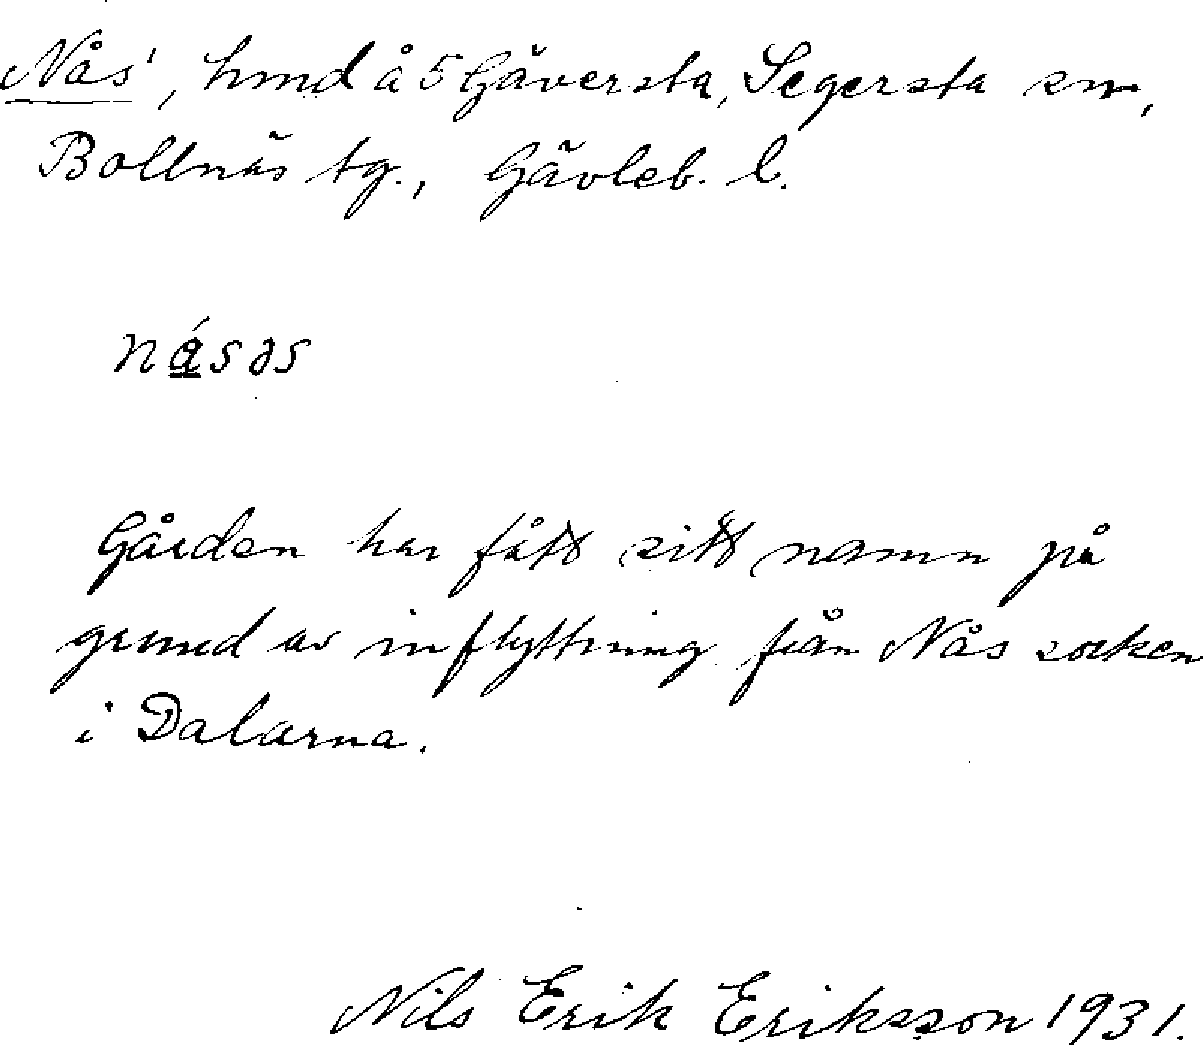 Nås', hmd å 5 Gäversta, Segersta sn,
Bollnäs tg., Gävleb. l.
násəs
Gården har fått sitt namn på
grund av inflyttning från Nås socken
i Dalarna.
Nils Erik Eriksson 1931.